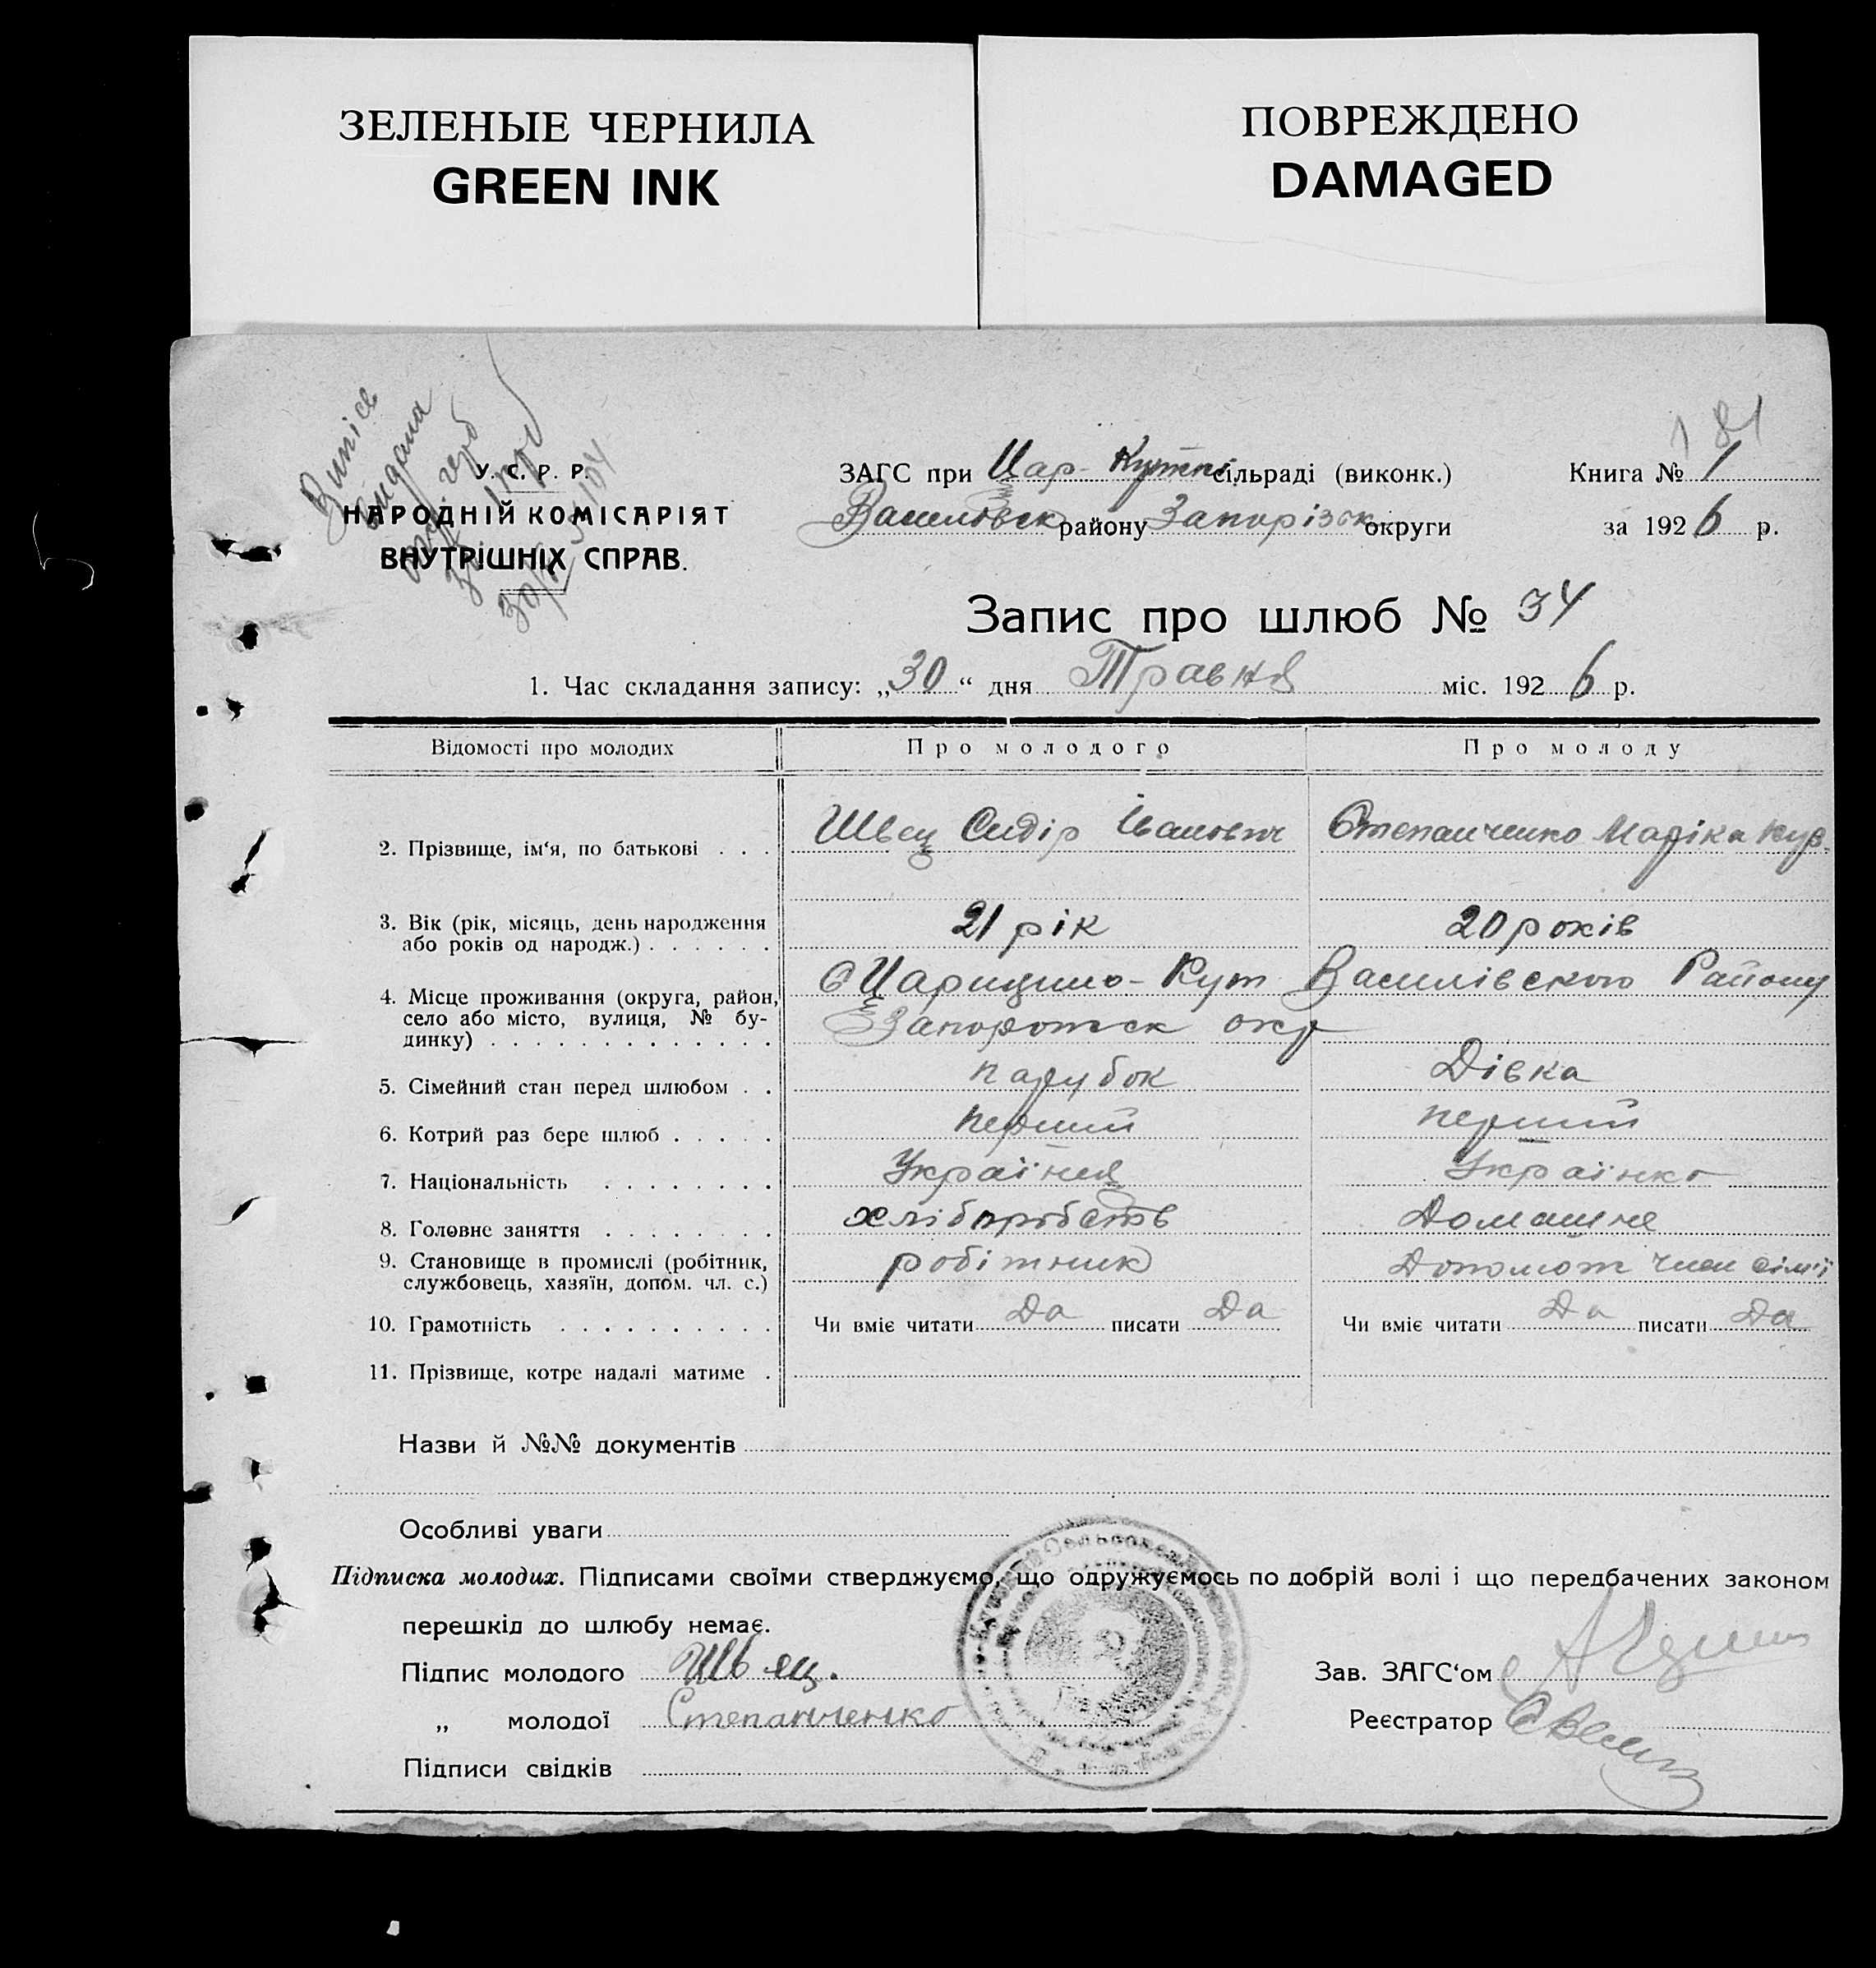 ЗЕЛЕНЫЕ ЧЕРНИЛА
GREEN INK
ПОВРЕЖДЕНО
DAMAGED
181
Витяг
видана
У. С. Р. Р.
НАРОДНІЙ КОМІСАРІЯТ
ВНУТРІШНІХ СПРАВ.
ЗАГС при Цар-Кутпі сільраді (виконк.)
Василовск району Запорізьк округи
Книга № 1
за 1926 р.
Запис про шлюб № 34
1. Час складання запису: „30“ дня Травня міс. 1926 р.
Відомості про молодих Про молодого Про молоду
2. Прізвище, ім‘я, по батькові . . . Швец Сидір Іванович Степанченко Маріка Кур.
3. Вік (рік, місяць, день народження
або років од народж.) . . . . . . 21 рік 20 років
4. Місце проживання (округа, район,
село або місто, вулиця, № бу-
динку) . . . . . . . . . . . . .
с Царицино-Кут Василівского Району
Запоротск окр
5. Сімейний стан перед шлюбом . . парубок Дівка
6. Котрий раз бере шлюб . . . . . перший перший
7. Національність . . . . . . . . Українец Українка
8. Головне заняття . . . . . . . . хліборобств Домашне
9. Становище в промислі (робітник,
службовець, хазяїн, допом. чл. с.) робітник Допомот член сім'ї
10. Грамотність . . . . . . . . . . Чи вміє читати Да писати Да Чи вміє читати Да писати Да
11. Прізвище, котре надалі матиме .
Назви й №№ документів
Особливі уваги
Підписка молодих. Підписами своїми стверджуємо, що одружуємось по добрій волі і що передбачених законом
перешкід до шлюбу немає.
Підпис молодого Швец.
„ молодої Степанченко
Підписи свідків
Зав. ЗАГС‘ом
Реєстратор